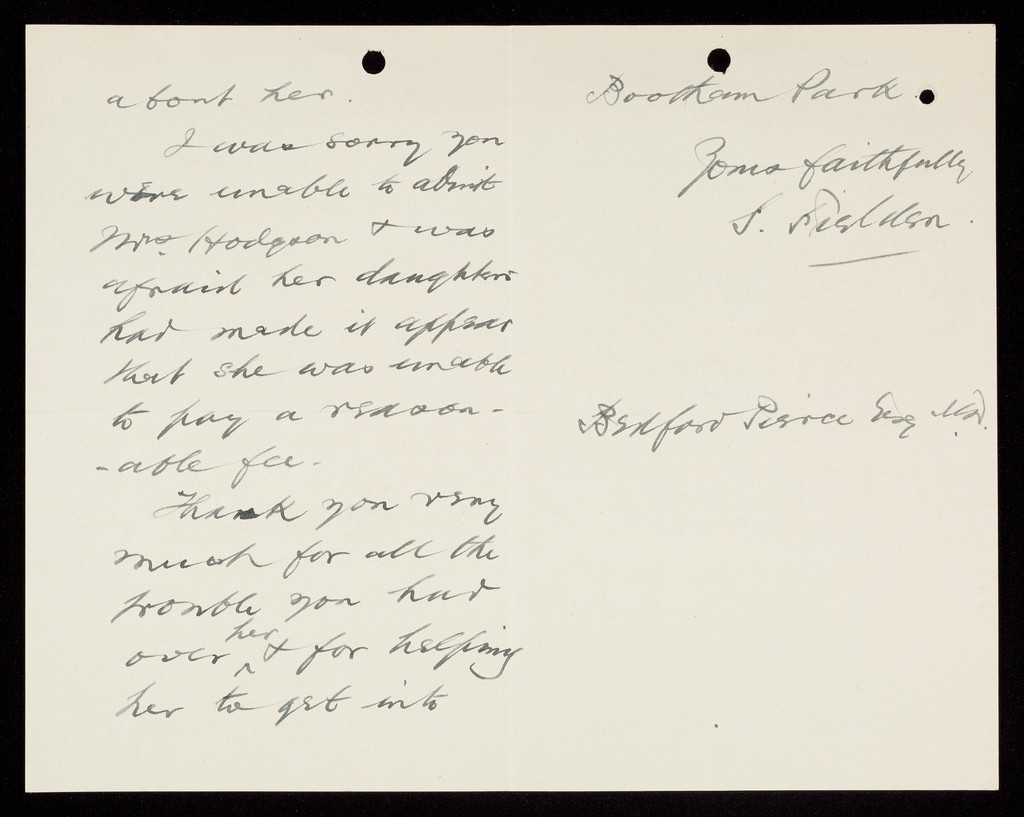 about her.
I was sorry you
were unable to admit
Mrs. Hodgson & was
afraid her daughters
had made it appear
that she was unable
to pay a reason-
-able fee.
Thank you very
much for all the
trouble you had
her
over ^ & for helping
her to get into
Bootham Park.
Yours faithfully
S. Fielden.
Bedford Pierce Esq M.D.